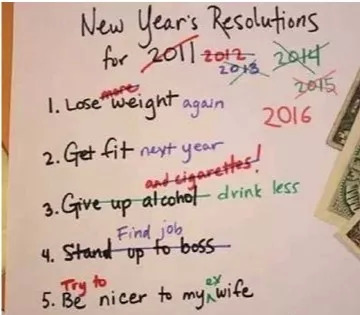 New Year's Resolutions
for 2011 2012 2013 2014 2015
2016
more
1. Lose weight again
2. Get fit next year
and cigarettes!
3. Give up alcohol drink less
Find job
4. Stand up to boss
Try to ex
5. Be nicer to my wife